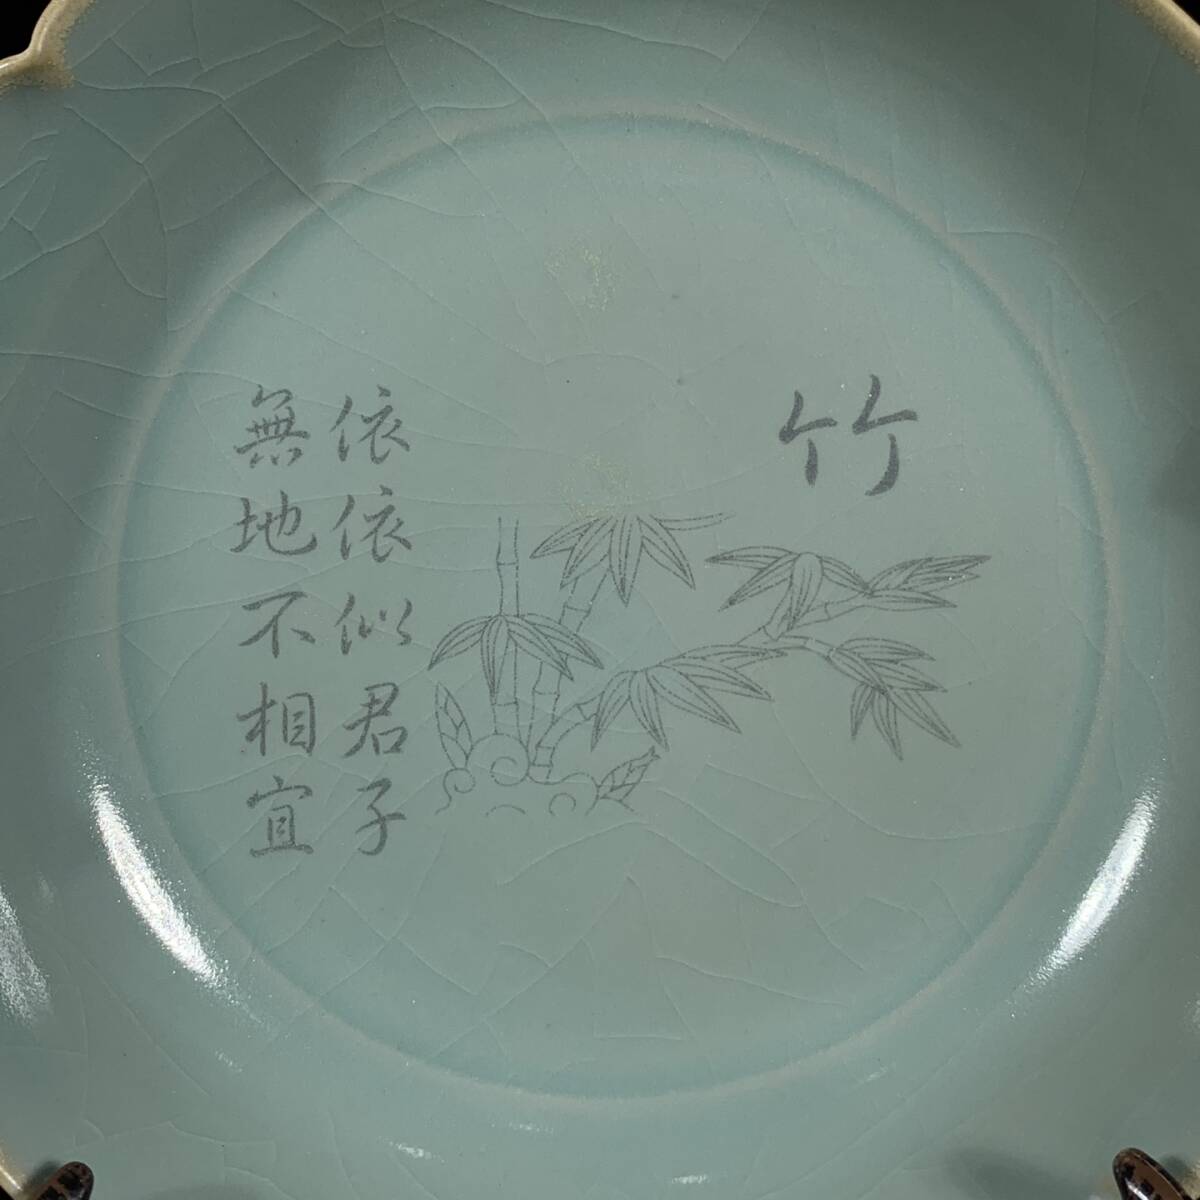 竹
依依似君子
無地不相宜